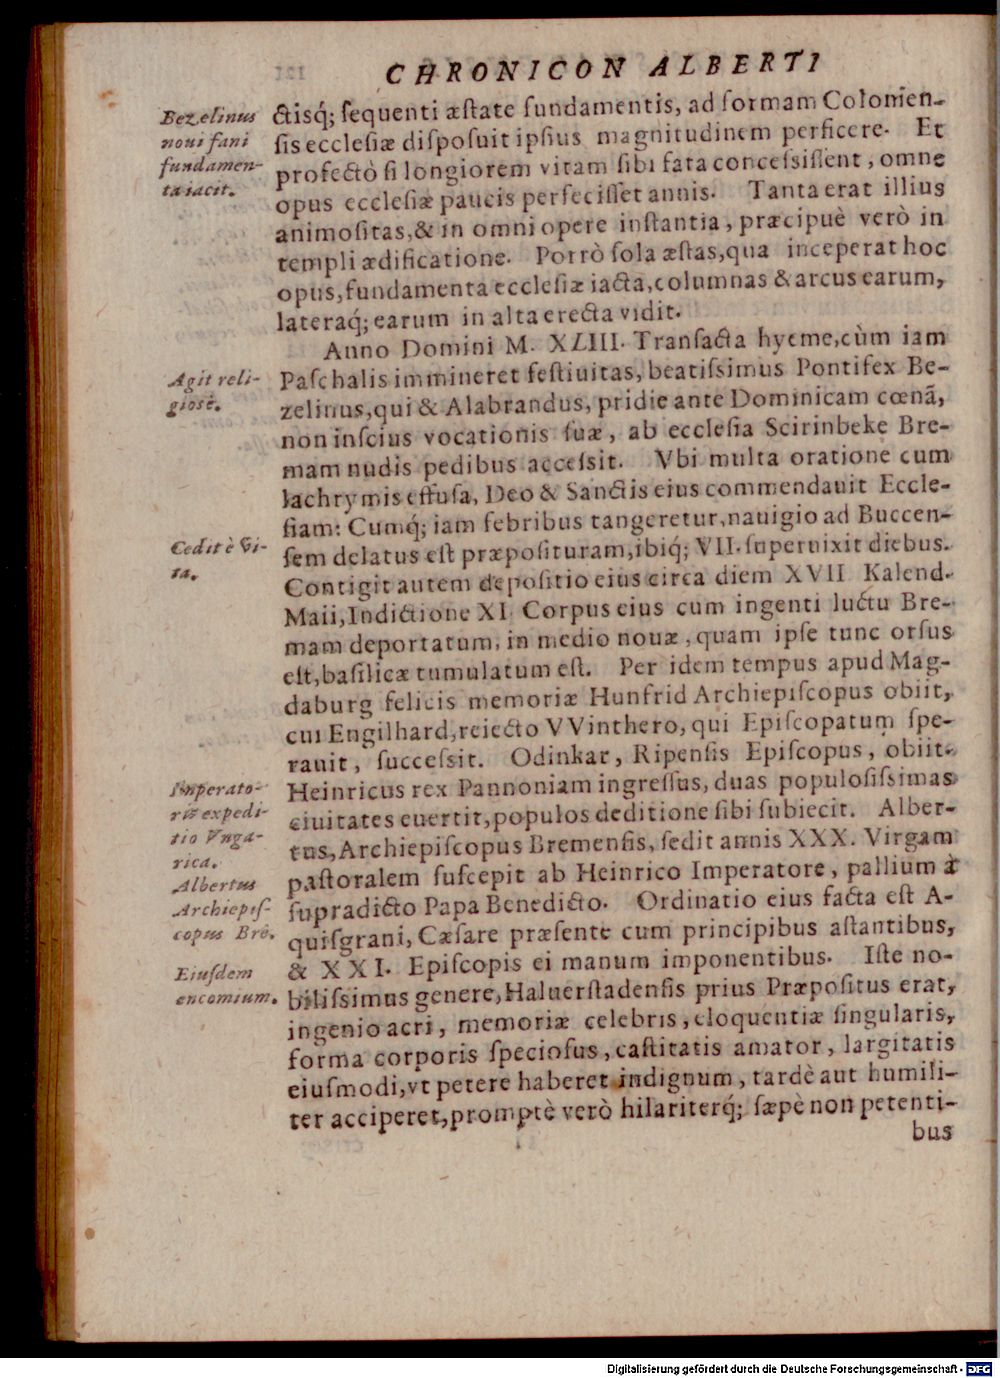 CHRONICON ALBERTI
Bezelinus
noui fani
fundamen-
ta iacit.
ctisq́; ſequenti æſtate fundamentis, ad formam Colonien-
ſis eccleſiæ diſpoſuit ipſius magnitudinem perficere. Et
profectò ſi longiorem vitam ſibi fata conceſsiſſent, omne
opus eccleſiæ paucis perfeciſſet annis. Tanta erat illius
animoſitas, & in omni opere inſtantia, præcipuè verò in
templi ædificatione. Porrò ſola æſtas, qua inceperat hoc
opus, fundamenta eccleſiæ iacta, columnas & arcus earum,
lateraq́; earum in alta erecta vidit.
Anno Domini M. XLIII. Tranſacta hyeme, cùm iam
Agit reli-
gioſè.
Paſchalis immineret feſtiuitas, beatiſsimus Pontifex Be-
zelinus, qui & Alabrandus, pridie ante Dominicam cœnā,
non inſcius vocationis ſuæ, ab eccleſia Scirinbeke Bre-
mam nudis pedibus acceſsit. Vbi multa oratione cum
lachrymis effuſa, Deo & Sanctis eius commendauit Eccle-
ſiam: Cumq́; iam febribus tangeretur, nauigio ad Buccen-
Cedit è vi-
ta.
ſem delatus eſt præpoſituram, ibiq́; VII. ſuperuixit diebus.
Contigit autem depoſitio eius circa diem XVII Kalend.
Maii, Indictione XI. Corpus eius cum ingenti luctu Bre-
mam deportatum, in medio nouæ, quam ipſe tunc orſus
eſt, baſilicæ tumulatum eſt. Per idem tempus apud Mag-
daburg felicis memoriæ Hunfrid Archiepiſcopus obiit,
cui Engilhard, reiecto VVinthero, qui Epiſcopatum ſpe-
rauit, ſucceſsit. Odinkar, Ripenſis Epiſcopus, obiit.
Imperato-
ris expedi-
tio Vnga-
rica.
Albertus
Archiepiſ-
copus Bre.
Eiuſdem
encomium.
Heinricus rex Pannoniam ingreſſus, duas populoſiſsimas
ciuitates euertit, populos deditione ſibi ſubiecit. Alber-
tus, Archiepiſcopus Bremenſis, ſedit annis XXX. Virgam
paſtoralem ſuſcepit ab Heinrico Imperatore, pallium à
ſupradicto Papa Benedicto. Ordinatio eius facta eſt A-
quiſgrani, Cæſare præſente cum principibus aſtantibus,
& XXI. Epiſcopis ei manum imponentibus. Iſte no-
biliſsimus genere, Haluerſtadenſis prius Præpoſitus erat,
ingenio acri, memoriæ celebris, eloquentiæ ſingularis,
forma corporis ſpecioſus, caſtitatis amator, largitatis
eiuſmodi, vt petere haberet indignum, tardè aut humili-
ter acciperet, promptè verò hilariterq́; ſæpè non petenti-
bus
Digitalisierung gefördert durch die Deutsche Forschungsgemeinschaft - DFG